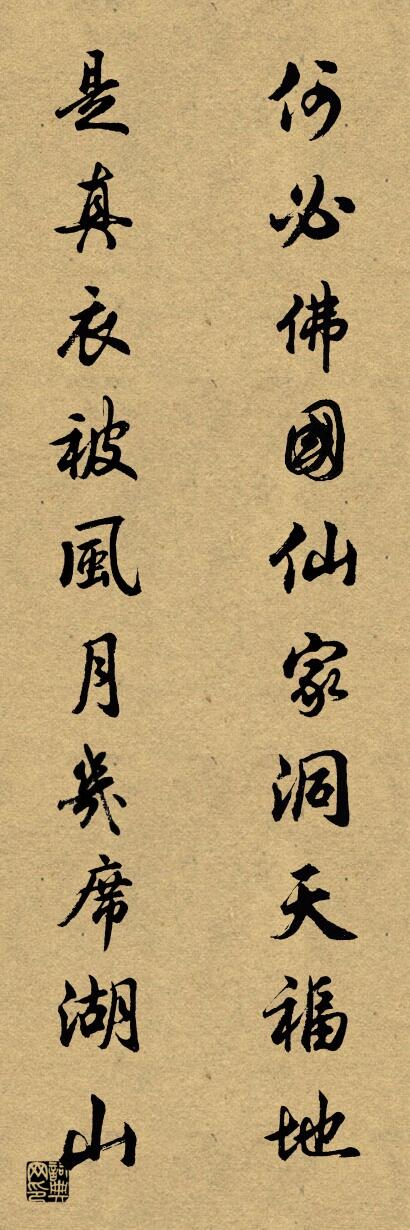 何必佛國仙家洞天福地
是真衣被風月幾席湖山
詞典網印